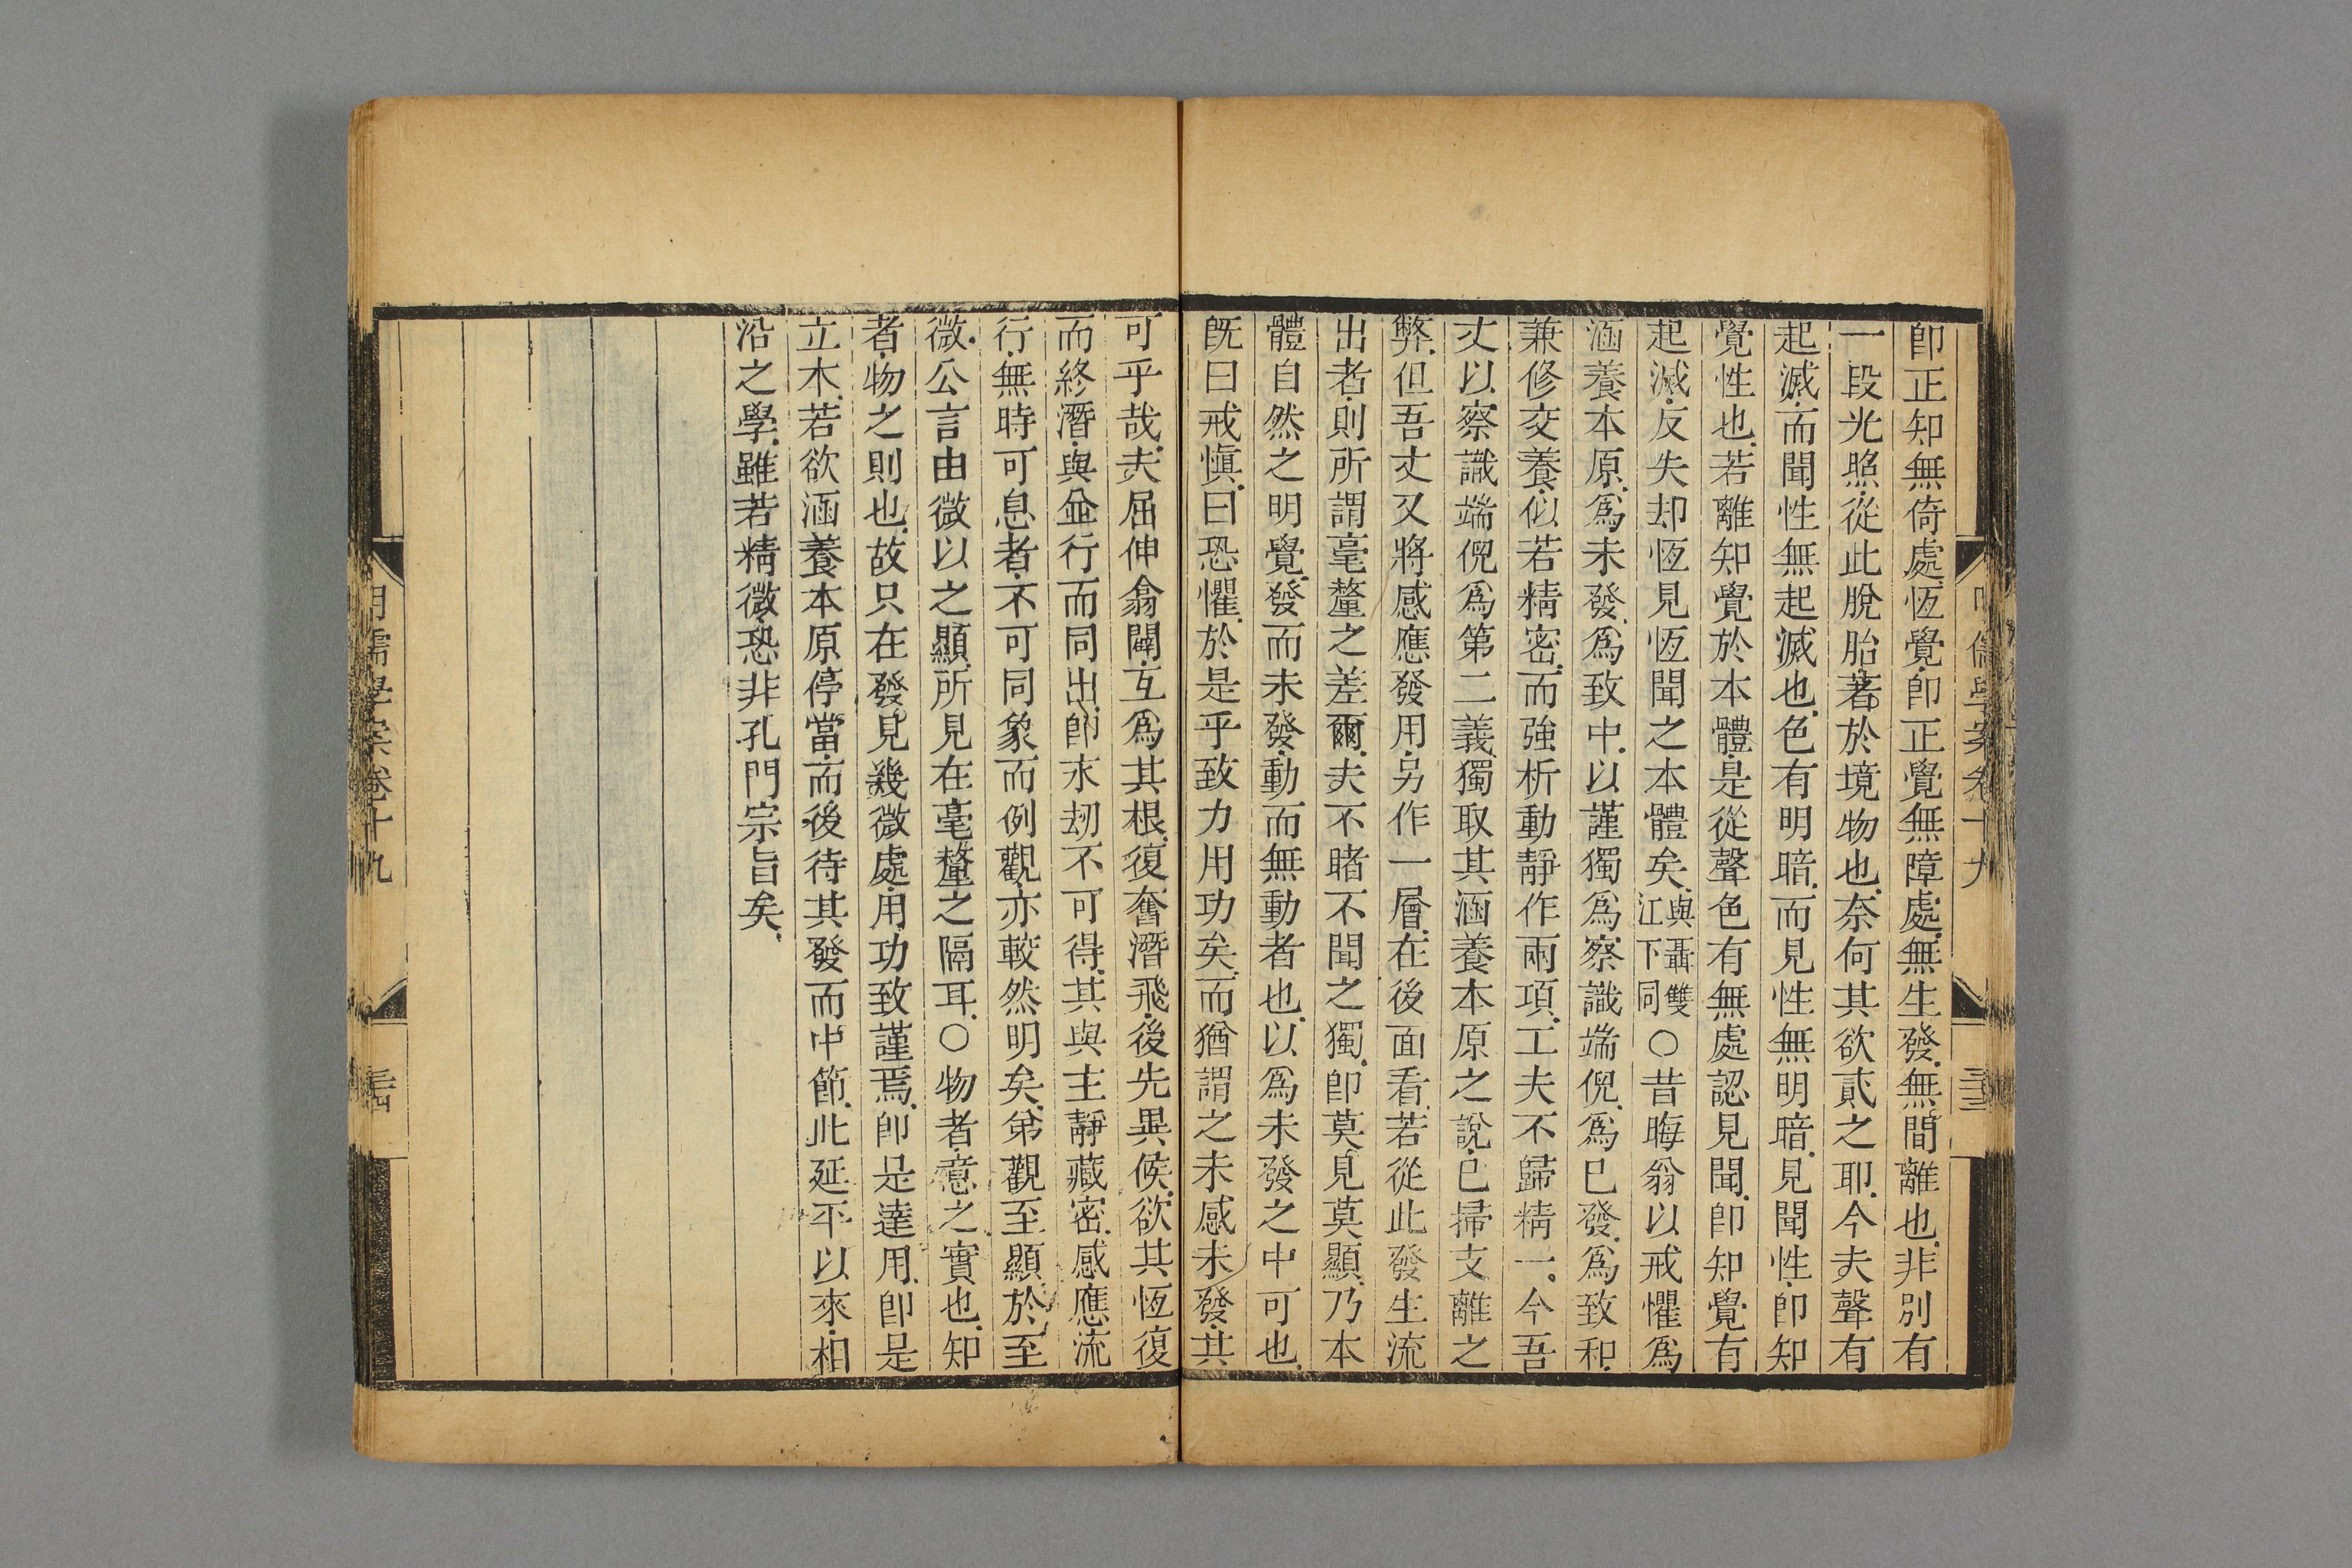 卽正知無倚處恆覺卽正覺無障處無生發無間離也非別有
一段光照從此脫胎著於境物也奈何其欲貳之耶今夫聲有
起滅而聞性無起滅也色有明暗而見性無明暗見聞性卽知
覺性也若離知覺於本體是從聲色有無處認見聞卽知覺有
起滅反失却恆見恆聞之本體矣與聶雙江下同○昔晦翁以戒懼爲
涵養本原爲未發爲致中以謹獨爲察識端倪爲已發爲致和
兼修交養似若精密而強析動靜作兩項工夫不歸精一今吾
丈以察識端倪爲第二義獨取其涵養本原之說已掃支離之
弊但吾丈又將感應發用另作一層在後面看若從此發生流
出者則所謂毫釐之差爾夫不睹不聞之獨卽莫見莫顯乃本
體自然之明覺發而未發動而無動者也以爲未發之中可也
旣曰戒愼曰恐懼於是乎致力用功矣而猶謂之未感未發其
可乎哉夫屈伸翕闢互爲其根復奮潛飛後先異候欲其恆復
而終潛與並行而同出卽永刼不可得其與主靜藏密感應流
行無時可息者不可同象而例觀亦較然明矣弟觀至顯於至
微公言由微以之顯所見在毫釐之隔耳○物者意之實也知
者物之則也故只在發見幾微處用功致謹焉卽是達用卽是
立本若欲涵養本原停當而後待其發而中節此延平以來相
沿之學雖若精微恐非孔門宗旨矣
明儒學案卷十九
三四